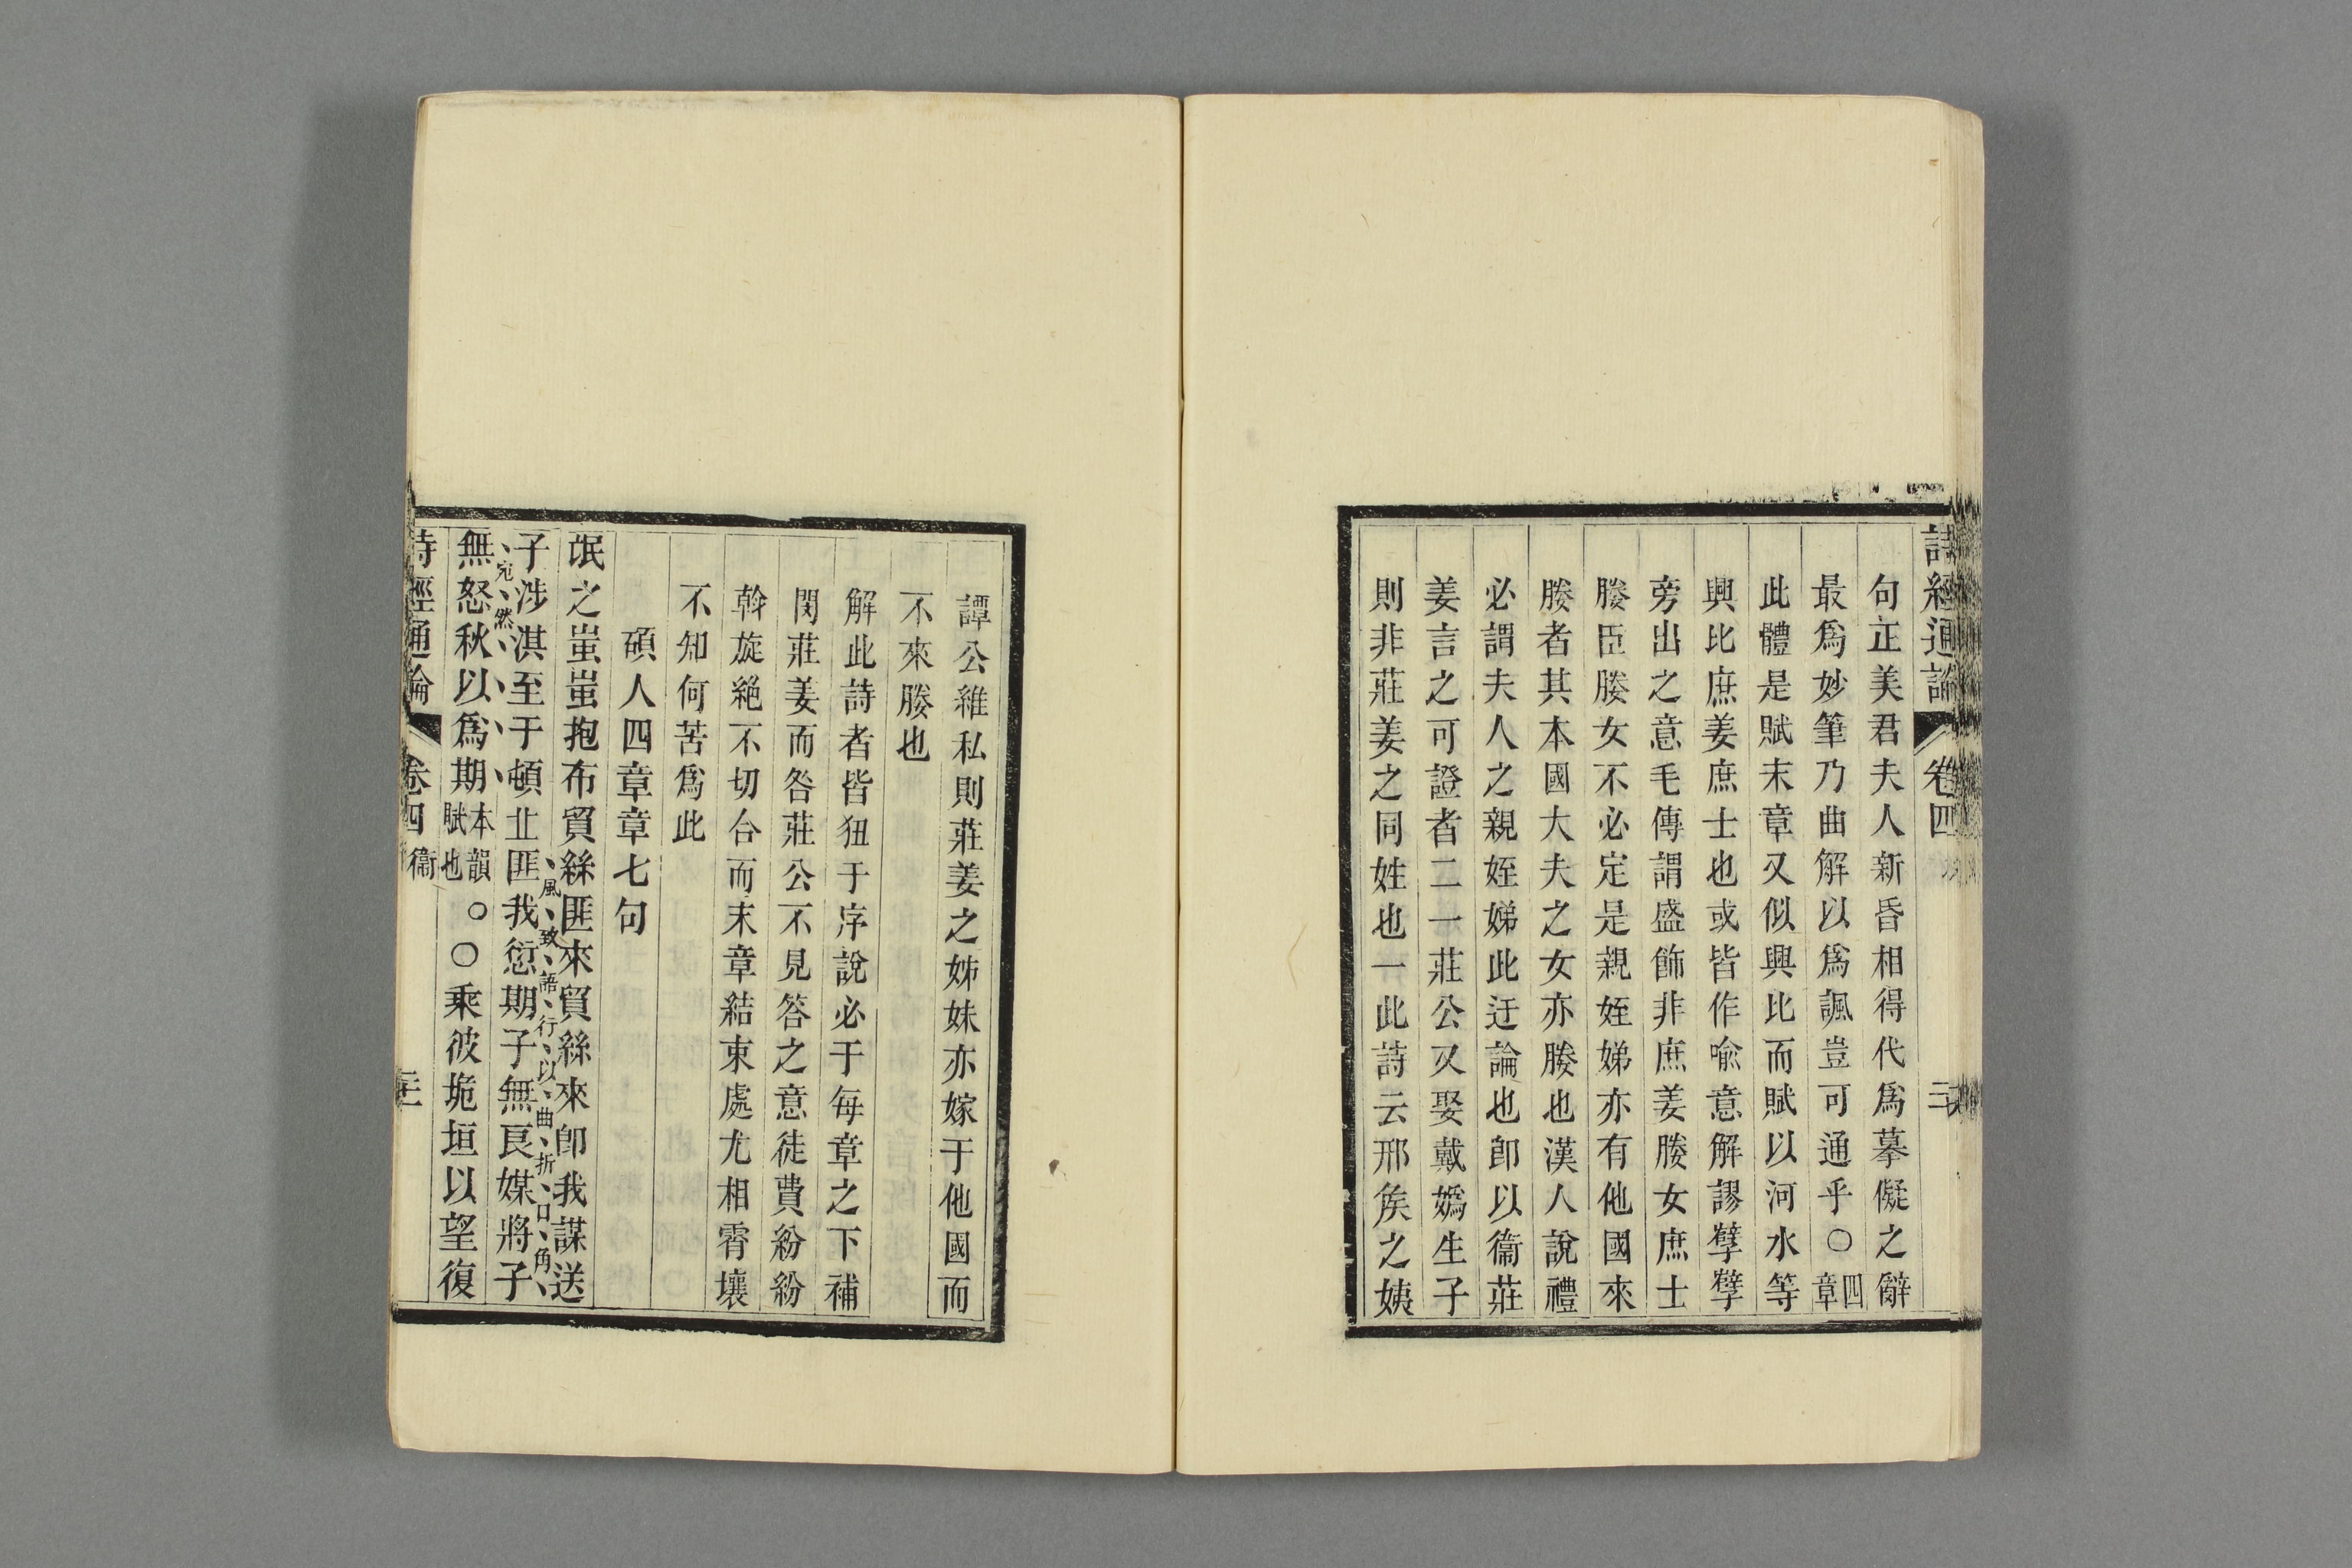 詩經通論 卷四 二
句正美君夫人新昏相得代爲摹儗之辭
最爲妙筆乃曲解以爲諷豈可通乎〇四章
此體是賦末章又似興比而賦以河水等
興比庶姜庶士也或皆作喻意解謬孽孽
旁出之意毛傳謂盛飾非庶姜媵女庶士
媵臣媵女不必定是親姪娣亦有他國來
媵者其本國大夫之女亦媵也漢人說禮
必謂夫人之親姪娣此迂論也卽以衞莊
姜言之可證者二一莊公又娶戴嬀生子
則非莊姜之同姓也一此詩云邢矦之姨
譚公維私則莊姜之姊妹亦嫁于他國而
不來媵也
解此詩者皆狃于序說必于每章之下補
閔莊姜而咎莊公不見答之意徒費紛紛
斡旋絕不切合而末章結束處尤相霄壤
不知何苦爲此
碩人四章章七句
氓之蚩蚩抱布貿絲匪來貿絲來卽我謀送
風致語行以曲折口角
子涉淇至于頓丘匪我愆期子無良媒將子
宛然
無怒秋以爲期本韻賦也。〇乘彼垝垣以望復
詩經通論 卷四 衞